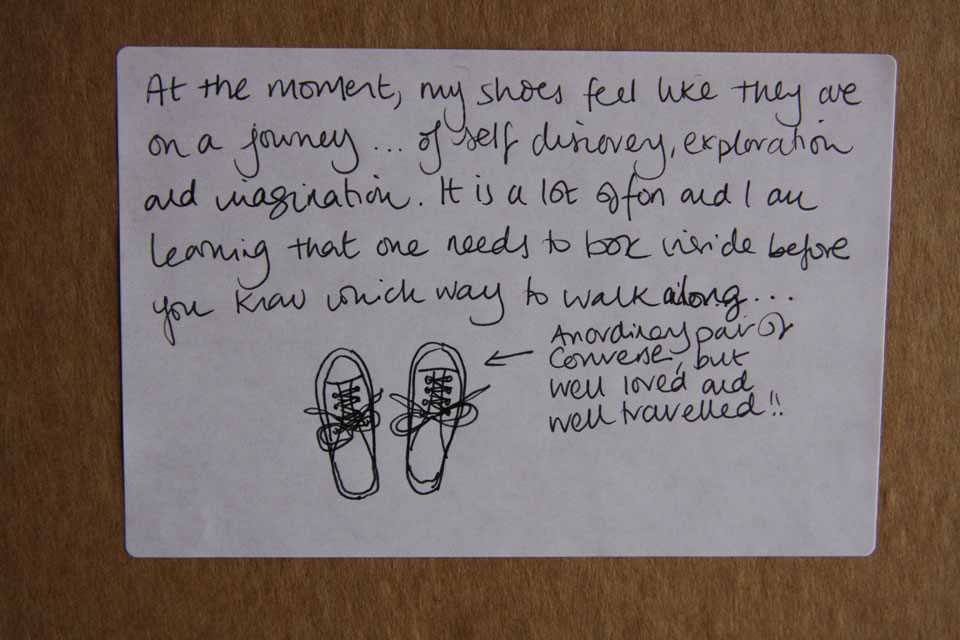 At the moment, my shoes feel like they are
on a journey ... of self discovery, exploration
and imagination. It is a lot of fun and I am
learning that one needs to look inside before
you know which way to walk along...
An ordinary pair of
Converse, but
well loved and
well travelled!!